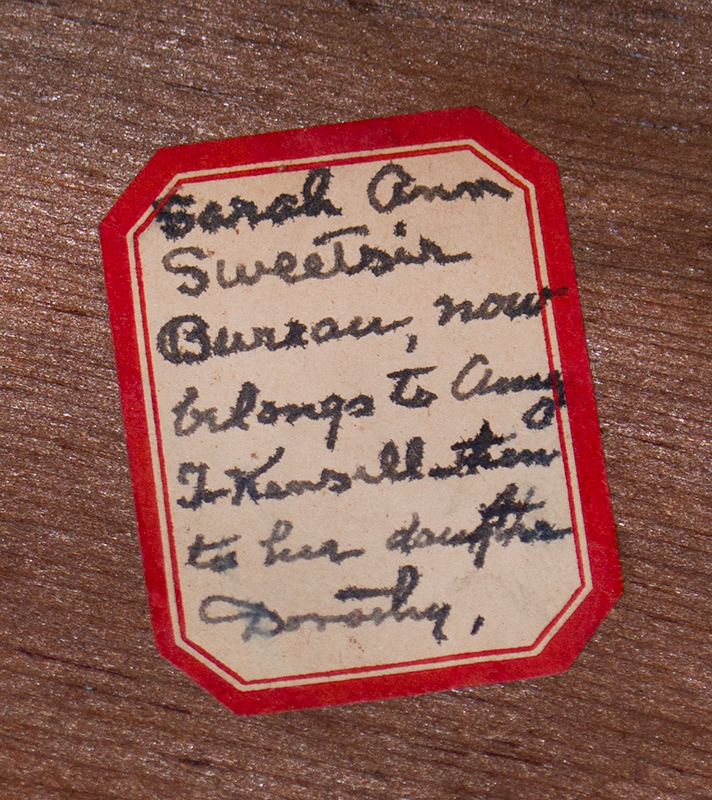 Sarah Ann
Sweetsir
Bureau, now
belongs to Amy
T. Kensell then
to her daughter
Dorothy,